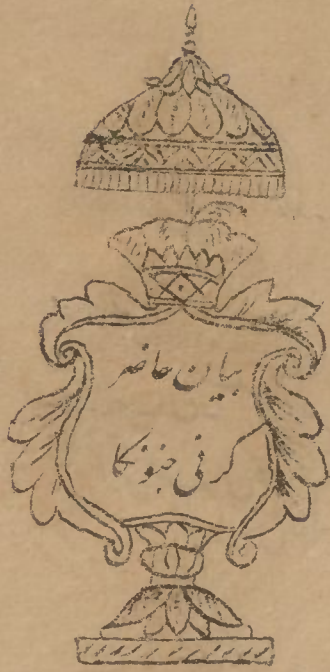 بیان حاضر
کرنی جنونکا